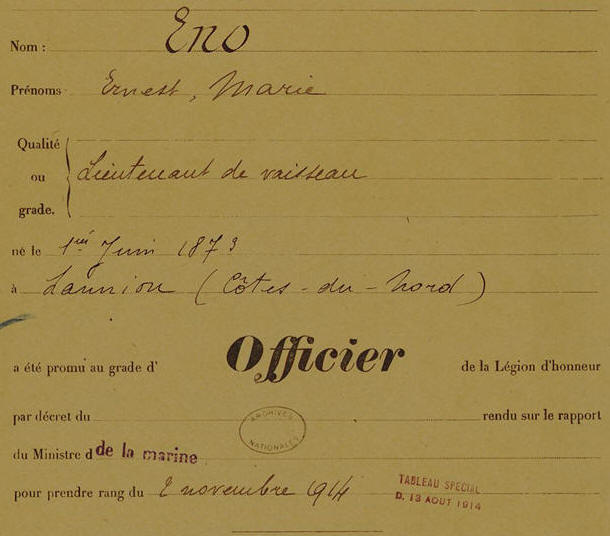 Nom : Eno
Prénoms Ernest, Marie
Qualité
ou
grade.
Lieutenant de vaisseau
né le 1er Juin 1873
à Lannion (Côtes-du-Nord)
a été promu au grade d' Officier de la Légion d'honneur
par décret du rendu sur le rapport
ARCHIVES
NATIONALES
du Ministre d de la marine
pour prendre rang du 2 novembre 1914
TABLEAU SPECIAL
D. 13 AOUT 1914